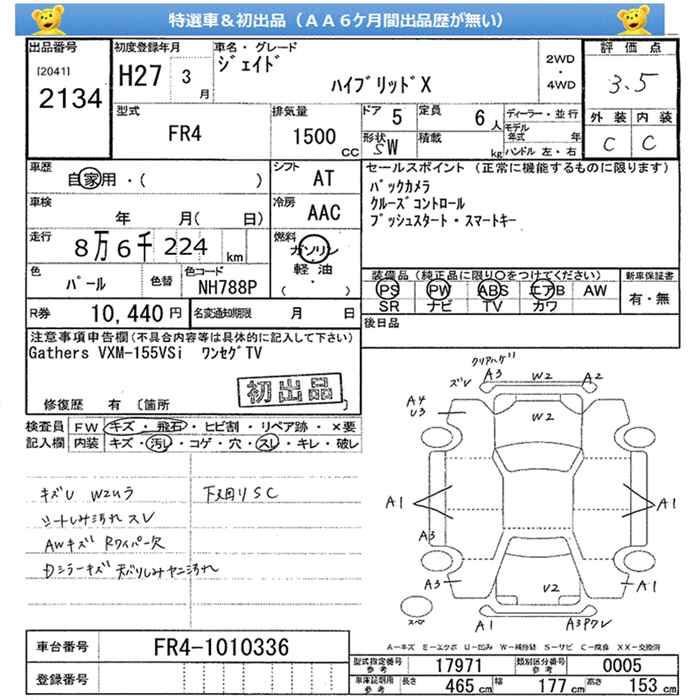 特選車＆初出品（ＡＡ６ケ月間出品歴が無い）
出品番号 初度登録年月 車名・グレード 評価点
[2041] ジェイド 2WD
2134 H27 3月 ハイブリッドX ・ 3.5
4WD
型式 排気量 ドア 定員 ディーラー・並行 外装 内装
FR4 1500cc 5 6人 モデル年式 年
形状 SW 積載 kg ハンドル 左・右 C C
車歴 シフト セールスポイント（正常に機能するものに限ります）
自家用・( ) AT バックカメラ
車検 冷房 クルーズコントロール
年 月( 日) AAC プッシュスタート・スマートキー
走行 燃料
8万6千224km ガソリン
軽油
( ・ )
色 色替 色コード 装備品（純正品に限り○をつけてください） 新車保証書
パール NH788P PS PW ABS エアB AW 有・無
SR ナビ TV カワ
R券 10,440円 名変通知期限 月 日 後日品
注意事項申告欄(不具合内容等は具体的に記入して下さい)
Gathers VXM-155VSi ワンセグTV
初出品
修復歴 有 〔箇所 〕
検査員 FW キズ・飛石・ヒビ割・リペア跡・×要
記入欄 内装 キズ・汚し・コゲ・穴・スレ・キレ・破レ
キズU W2ムラ 下回りSC
シートしみ汚れスレ
AWキズ Rワイパー欠
Dミラーキズ 天バリしみヤニ汚れ
クリアハゲ
ズレ A3 W2 A2
A4
U3 W2
A1 A1
A3
A3 V2 A1
スペア A1 A3 ワレ
A－キズ E－エクボ U－凹み W－補修跡 S－サビ C－腐食 XX－交換済
車台番号 FR4-1010336
登録番号
型式指定番号参考 17971 類別区分番号参考 0005
車庫証明用参考 長さ 465cm 幅 177cm 高さ 153cm